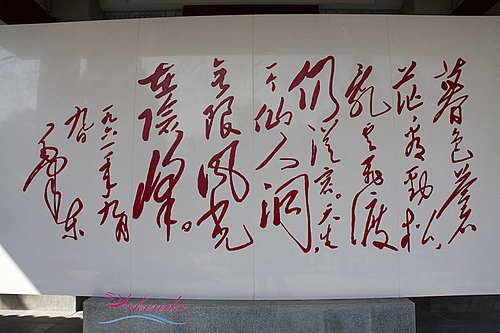 暮色蒼
茫看勁松,
乱云飛渡
仍從容。天生
一个仙人洞
无限风光
在險峰。
一九六一年九月
九日
毛泽东